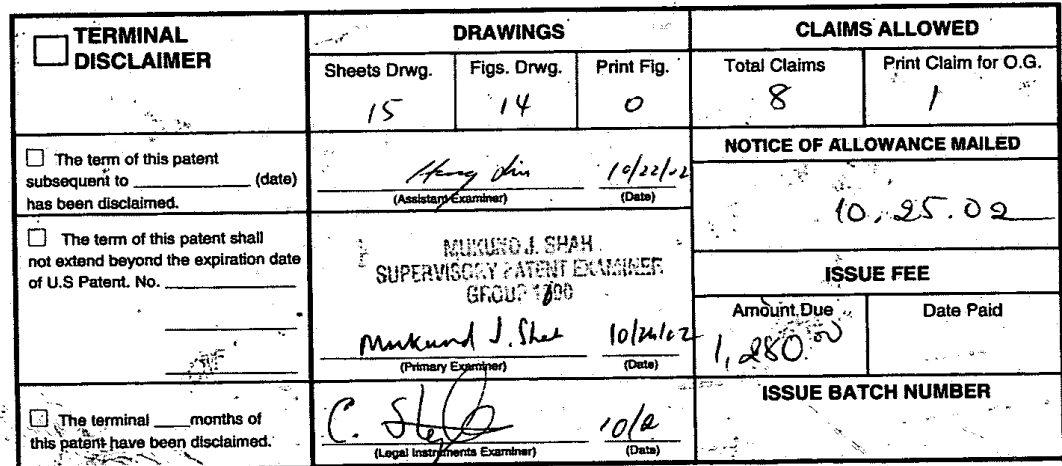 TERMINAL
DISCLAIMER
☐ The term of this patent
subsequent to ____________ (date)
has been disclaimed.
☐ The term of this patent shall
not extend beyond the expiration date
of U.S Patent. No. ____________
☐ The terminal ____months of
this patent have been disclaimed.
DRAWINGS
Sheets Drwg. Figs. Drwg. Print Fig.
15 14 0
10/22/02
(Assistant Examiner) (Date)
MUKUND J. SHAH
SUPERVISORY PATENT EXAMINER
GROUP
Mukund J. Shah
(Primary Examiner) (Date)
C.
(Legal Instruments Examiner) (Date)
CLAIMS ALLOWED
Total Claims Print Claim for O.G.
8 1
NOTICE OF ALLOWANCE MAILED
10.25.02
ISSUE FEE
Amount Due Date Paid
1,280.00
ISSUE BATCH NUMBER